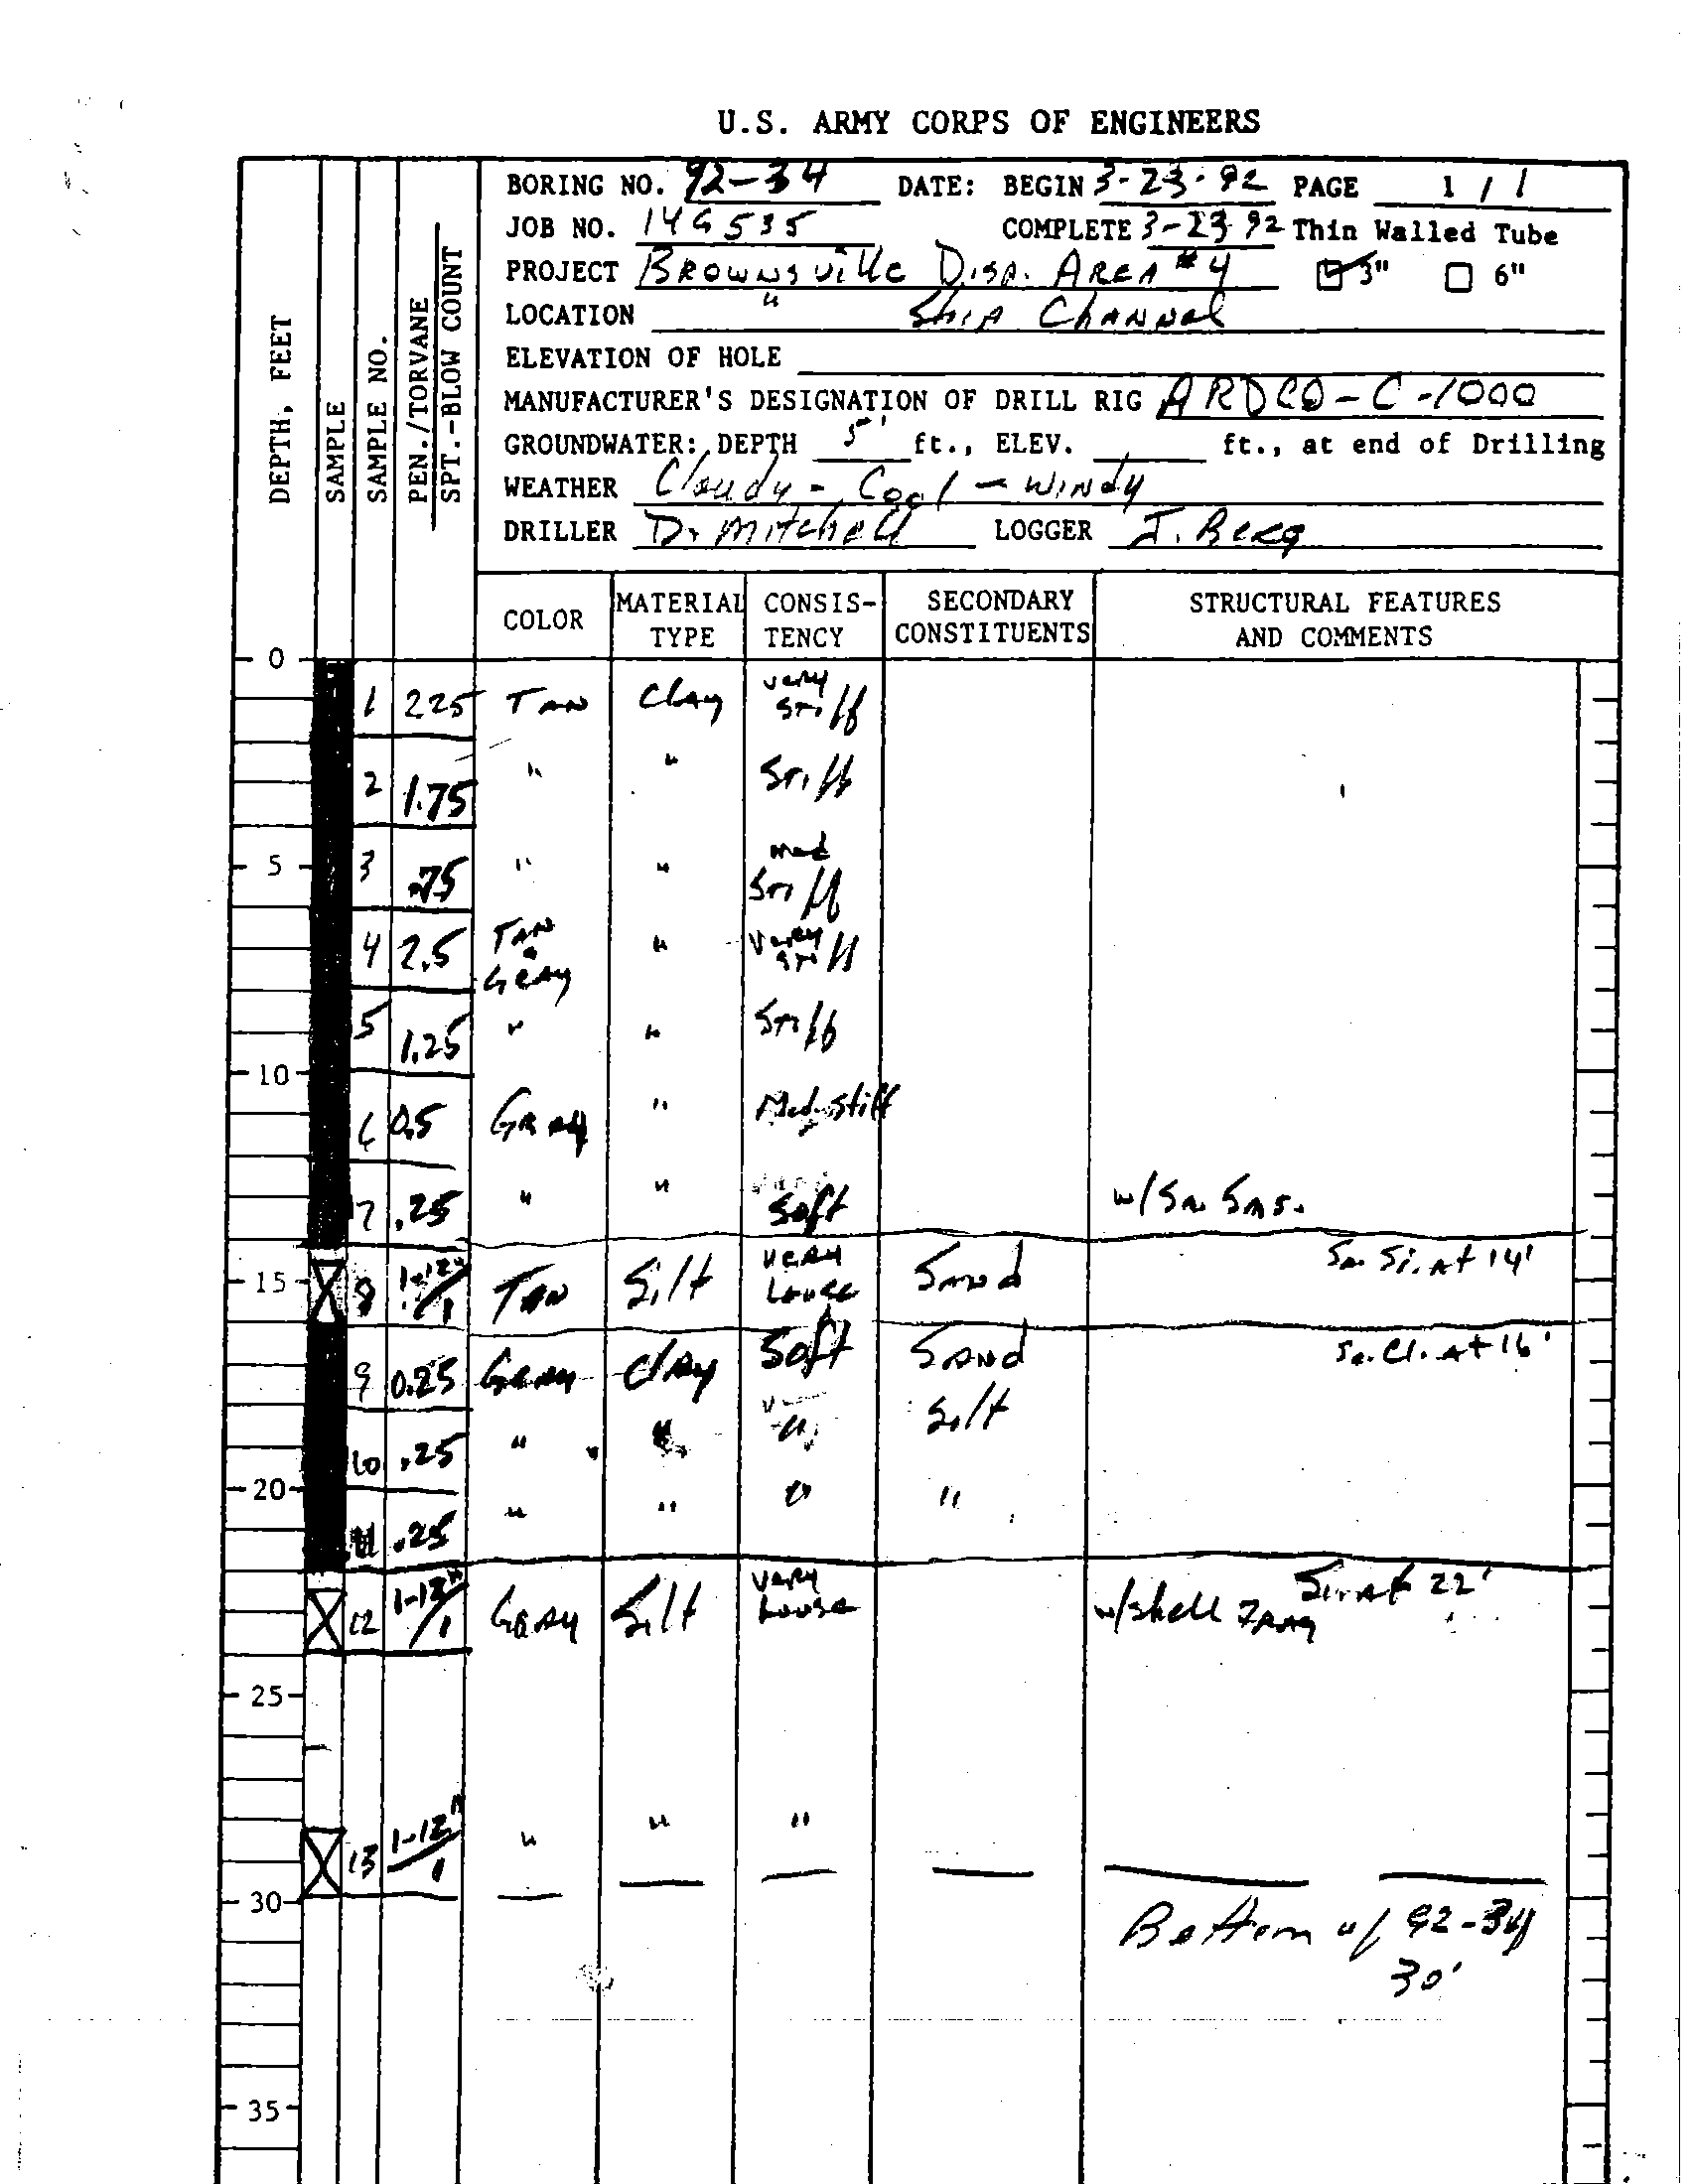 U.S. ARMY CORPS OF ENGINEERS
BORING NO. 92-34 DATE: BEGIN 3-23-92 PAGE 1 / 1
JOB NO. 14G535 COMPLETE 3-23-92 Thin Walled Tube
PROJECT BROWNSVILLE DISP. AREA #4 3" 6"
LOCATION " Ship Channel
ELEVATION OF HOLE
MANUFACTURER'S DESIGNATION OF DRILL RIG ARDCO-C-1000
GROUNDWATER: DEPTH 5' ft., ELEV. ft., at end of Drilling
WEATHER Cloudy - Cool - Windy
DRILLER D. Mitchell LOGGER J. Berg
DEPTH, FEET
SAMPLE
SAMPLE NO.
PEN./TORVANE
SPT.-BLOW COUNT
COLOR MATERIAL TYPE CONSIS-TENCY SECONDARY CONSTITUENTS STRUCTURAL FEATURES AND COMMENTS
0
1 225 TAN Clay very stiff
2 1.75 " " Stiff
5 3 .75 " " med Stiff
4 2.5 TAN & GRAY " very stiff
5 1.25 " " Stiff
10
6 0.5 GRAY " Med. stiff
7 .25 " " Soft w/ Sa. Sms.
Sa. Si. at 14'
15 8 1-12"/1 TAN Silt very Loose Sand
Sa. Cl. at 16'
9 0.25 GRAY Clay Soft Sand
10 .25 " " " Silt
20
11 .25 " " " "
Si. at 22'
12 1-12"/1 GRAY Silt very Loose w/shell FRAG
25
13 1-12"/1 " " "
30
Bottom of 92-34
30'
35